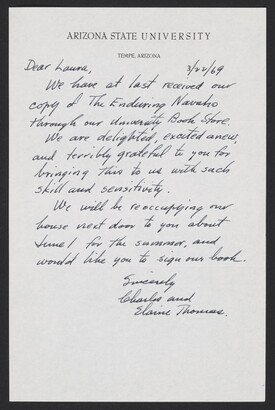 ARIZONA STATE UNIVERSITY
TEMPE, ARIZONA
Dear Laura, 3/22/69
We have at last received our
copy of The Enduring Navaho
through our University Book Store.
We are delighted, excited anew,
and terribly grateful to you for
bringing this to us with such
skill and sensitivity.
We will be reoccupying our
house next door to you about
June 1 for the summer, and
would like you to sign our book.
Sincerely
Charles and
Elaine Thomas.